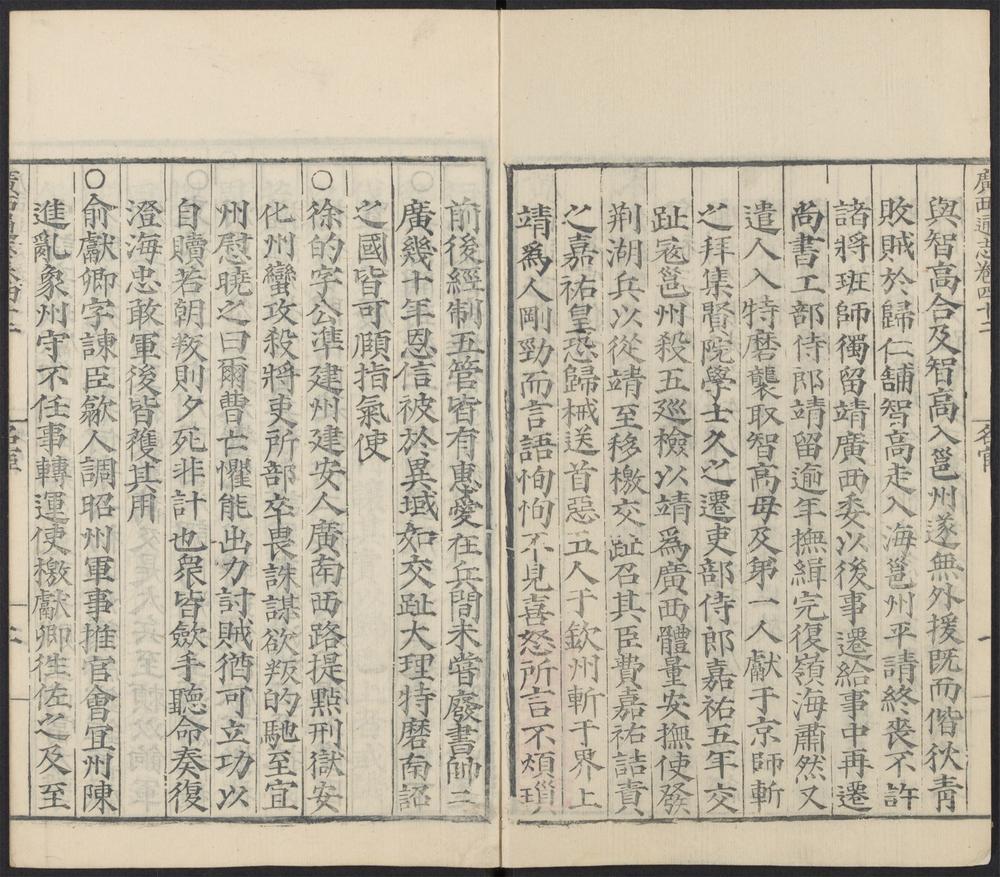 廣西通志卷四十二
名宦
一
與智高合及智高入邕州遂無外援既而偕狄青
敗賊於歸仁舖智高走入海邕州平請終喪不許
諸將班師獨留靖廣西委以後事遷給事中再遷
尚書工部侍郎靖留逾年撫緝完復嶺海肅然又
遣人入特磨襲取智高母及弟一人獻于京師斬
之拜集賢院學士久之遷吏部侍郎嘉祐五年交
趾寇邕州殺五廵檢以靖爲廣西體量安撫使發
荆湖兵以從靖至移檄交趾召其臣費嘉祐詰責
之嘉祐皇恐歸械送首惡五人于欽州斬于界上
靖爲人剛勁而言語恂恂不見喜怒所言不煩瑣
前後經制五管皆有惠愛在兵間未嘗廢書帥二
廣幾十年恩信被於異域如交趾大理特磨南詔
之國皆可頤指氣使
○徐的字公準建州建安人廣南西路提點刑獄安
化州蠻攻殺將吏所部卒畏誅謀欲叛的馳至宜
州慰曉之曰爾曹亡懼能出力討賊猶可立功以
自贖若朝叛則夕死非計也衆皆斂手聽命奏復
澄海忠敢軍後皆獲其用
○俞獻卿字諫臣歙人調昭州軍事推官會宜州陳
進亂象州守不任事轉運使檄獻卿往佐之及至